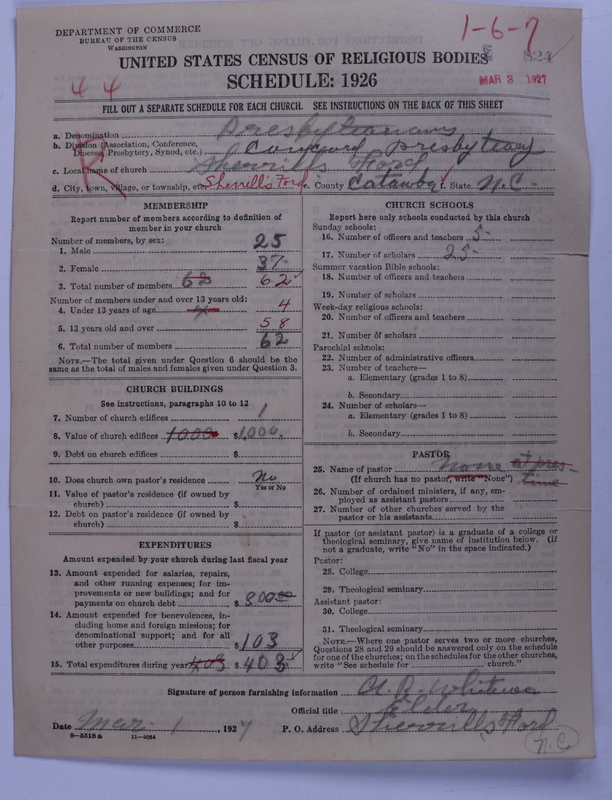 DEPARTMENT OF COMMERCE
BUREAU OF THE CENSUS
WASHINGTON
1-6-7
824
MAR 3 1927
UNITED STATES CENSUS OF RELIGIOUS BODIES
SCHEDULE: 1926
44
FILL OUT A SEPARATE SCHEDULE FOR EACH CHURCH. SEE INSTRUCTIONS ON THE BACK OF THIS SHEET
a. Denomination Presbyterians
b. Division (Association, Conference, Diocese, Presbytery, Synod, etc.) Concord Presbyteary
c. Local name of church Sherrills Ford
d. City, town, village, or township, etc. Sherrell's Ford e. County Catawba f. State N.C.
MEMBERSHIP
Report number of members according to definition of
member in your church
Number of members, by sex:
1. Male 25
2. Female 37
3. Total number of members 62 62
Number of members under and over 13 years old:
4. Under 13 years of age 4 4
5. 13 years old and over 58
6. Total number of members 62
NOTE.—The total given under Question 6 should be
same as the total of males and females given under Question 3.
CHURCH BUILDINGS
See instructions, paragraphs 10 to 12
7. Number of church edifices 1
8. Value of church edifices 1000 $1,000.
9. Debt on church edifices $
10. Does church own pastor's residence No
Yes or No
11. Value of pastor's residence (if owned by
church) $
12. Debt on pastor's residence (if owned by
church) $
EXPENDITURES
Amount expended by your church during last fiscal year
13. Amount expended for salaries, repairs,
and other running expenses; for im-
provements or new buildings; and for
payments on church debt $ 300.00
14. Amount expended for benevolences, in-
cluding home and foreign missions; for
denominational support; and for all
other purposes $ 103
15. Total expenditures during year 403 $ 403
CHURCH SCHOOLS
Report here only schools conducted by this church
Sunday schools:
16. Number of officers and teachers 5
17. Number of scholars 25
Summer vacation Bible schools:
18. Number of officers and teachers
19. Number of scholars
Week-day religious schools:
20. Number of officers and teachers
21. Number of scholars
Parochial schools:
22. Number of administrative officers
23. Number of teachers—
a. Elementary (grades 1 to 8)
b. Secondary
24. Number of scholars—
a. Elementary (grades 1 to 8)
b. Secondary
PASTOR
25. Name of pastor None at pres-
(If church has no pastor, write "None") time
26. Number of ordained ministers, if any, em-
ployed as assistant pastors
27. Number of other churches served by the
pastor or his assistants
If pastor (or assistant pastor) is a graduate of a college or
theological seminary, give name of institution below. (If
not a graduate, write "No" in the space indicated.)
Pastor:
28. College
29. Theological seminary
Assistant pastor:
30. College
31. Theological seminary
NOTE.—Where one pastor serves two or more churches,
Questions 28 and 29 should be answered only on the schedule
for one of the churches; on the schedules for the other churches,
write "See schedule for church."
Signature of person furnishing information
Official title Elder
Date Mar. 1, 1927 P. O. Address Sherrills Ford
N.C.
8—5518 a 11—9064